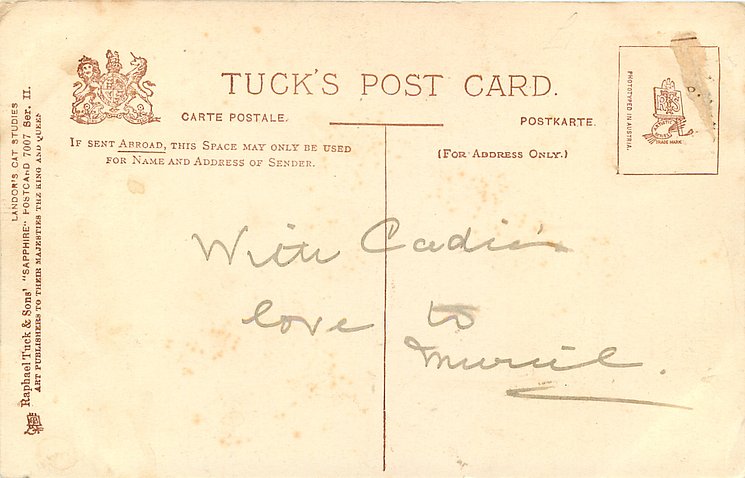 TUCK'S POST CARD.
CARTE POSTALE.
POSTKARTE.
IF SENT ABROAD, THIS SPACE MAY ONLY BE USED
FOR NAME AND ADDRESS OF SENDER.
(FOR ADDRESS ONLY.)
PHOTOTYPED IN AUSTRIA.
TRADE MARK
LANDOR'S CAT STUDIES
Raphael Tuck & Sons' "SAPPHIRE" POSTCARD 7007 Ser. II.
ART PUBLISHERS TO THEIR MAJESTIES THE KING AND QUEEN
With Cadie's
love to
Muriel.